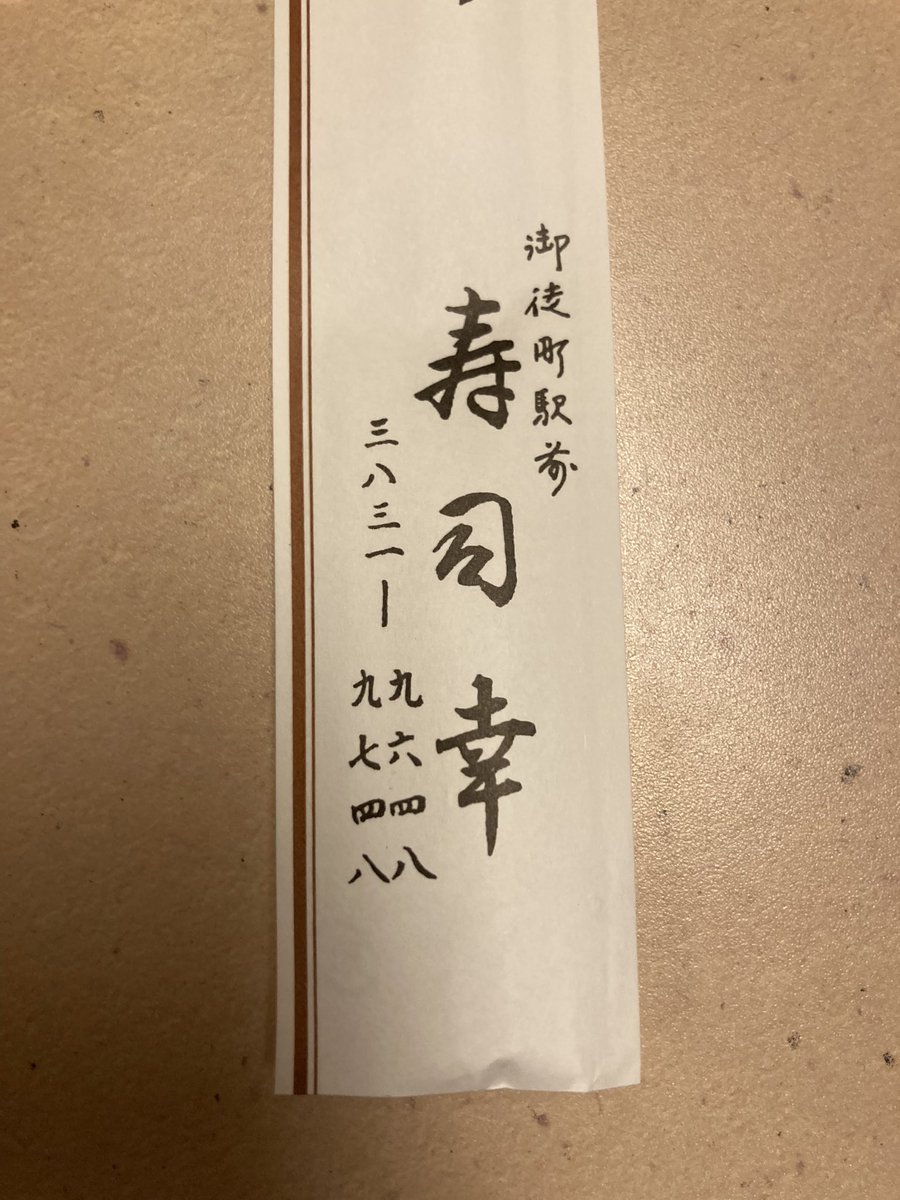 御徒町駅前
寿司幸
三八三一ー九六四八
九七四八